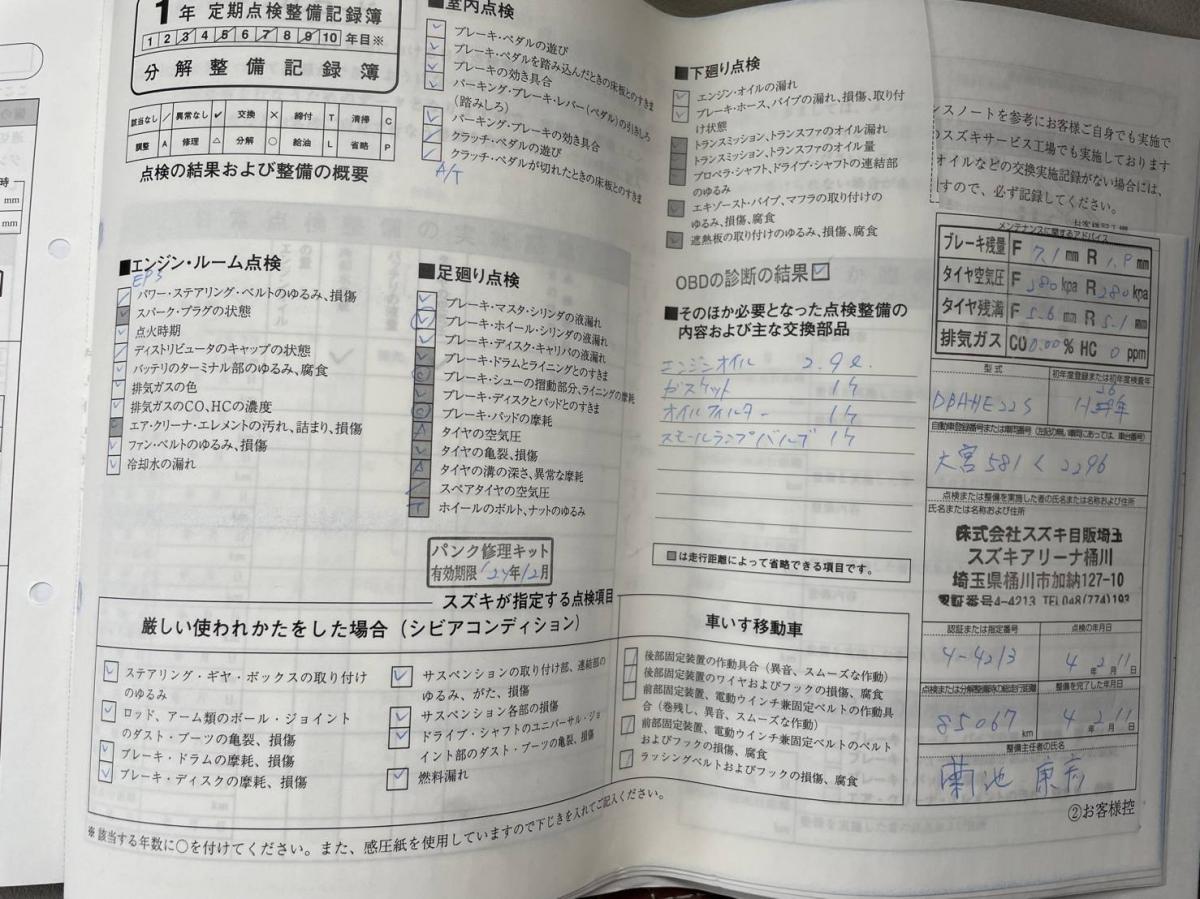 1年 定期点検整備記録簿
1 2 3 4 5 6 7 8 9 10 年目※
分解整備記録簿
該当なし / 異常なし ✓ 交換 × 締付 T 清掃 C
調整 A 修理 △ 分解 ○ 給油 L 省略 P
点検の結果および整備の概要
■エンジン・ルーム点検
EPS
パワー・ステアリング・ベルトのゆるみ、損傷
スパーク・プラグの状態
点火時期
ディストリビュータのキャップの状態
バッテリのターミナル部のゆるみ、腐食
排気ガスの色
排気ガスのCO、HCの濃度
エア・クリーナ・エレメントの汚れ、詰まり、損傷
ファン・ベルトのゆるみ、損傷
冷却水の漏れ
■室内点検
ブレーキ・ペダルの遊び
ブレーキ・ペダルを踏み込んだときの床板とのすきま
ブレーキの効き具合
パーキング・ブレーキ・レバー(ペダル)の引きしろ
(踏みしろ)
パーキング・ブレーキの効き具合
クラッチ・ペダルの遊び
クラッチ・ペダルが切れたときの床板とのすきま
A/T
■足廻り点検
ブレーキ・マスタ・シリンダの液漏れ
ブレーキ・ホイール・シリンダの液漏れ
ブレーキ・ディスク・キャリパの液漏れ
ブレーキ・ドラムとライニングとのすきま
ブレーキ・シューの摺動部分、ライニングの摩耗
ブレーキ・ディスクとパッドとのすきま
ブレーキ・パッドの摩耗
タイヤの空気圧
タイヤの亀裂、損傷
タイヤの溝の深さ、異常な摩耗
スペアタイヤの空気圧
ホイールのボルト、ナットのゆるみ
パンク修理キット
有効期限 '24年12月
■下廻り点検
エンジン・オイルの漏れ
ブレーキ・ホース、パイプの漏れ、損傷、取り付
け状態
トランスミッション、トランスファのオイル漏れ
トランスミッション、トランスファのオイル量
プロペラ・シャフト、ドライブ・シャフトの連結部
のゆるみ
エキゾースト・パイプ、マフラの取り付けの
ゆるみ、損傷、腐食
遮熱板の取り付けのゆるみ、損傷、腐食
OBDの診断の結果
■そのほか必要となった点検整備の
内容および主な交換部品
エンジンオイル 2.9ℓ
ガスケット 1ケ
オイルフィルター 1ケ
スモールランプバルブ 1ケ
は走行距離によって省略できる項目です。
スズキが指定する点検項目
厳しい使われかたをした場合(シビアコンディション)
ステアリング・ギヤ・ボックスの取り付け
のゆるみ
ロッド、アーム類のボール・ジョイント
のダスト・ブーツの亀裂、損傷
ブレーキ・ドラムの摩耗、損傷
ブレーキ・ディスクの摩耗、損傷
サスペンションの取り付け部、連結部の
ゆるみ、がた、損傷
サスペンション各部の損傷
ドライブ・シャフトのユニバーサル・ジョ
イント部のダスト・ブーツの亀裂、損傷
燃料漏れ
車いす移動車
後部固定装置の作動具合(異音、スムーズな作動)
後部固定装置のワイヤおよびフックの損傷、腐食
前部固定装置、電動ウインチ兼固定ベルトの作動具
合(巻残し、異音、スムーズな作動)
前部固定装置、電動ウインチ兼固定ベルトのベルト
およびフックの損傷、腐食
ラッシングベルトおよびフックの損傷、腐食
※該当する年数に○を付けてください。また、感圧紙を使用していますので下じきを入れてご記入ください。
ンスノートを参考にお客様ご自身でも実施で
のスズキサービス工場でも実施しております
オイルなどの交換実施記録がない場合には、
すので、必ず記録してください。
メンテナンスに関するアドバイス
ブレーキ残量 F 7.1 mm R 1.9 mm
タイヤ空気圧 F 280 kpa R 280 kpa
タイヤ残溝 F 5.6 mm R 5.1 mm
排気ガス CO 0.00 % HC 0 ppm
型式
初年度登録または初年度検査年
DBAHE22S
H 26年
自動車登録番号または車両番号(左記の無い車両にあっては、車台番号)
大宮 581 く 2296
点検または整備を実施した者の氏名または名称および住所
氏名または名称および住所
株式会社スズキ自販埼玉
スズキアリーナ桶川
埼玉県桶川市加納127-10
認証番号4-4213 TEL048(774)193
認証または指定番号
点検の年月日
4-4213
4年2月11日
点検または分解整備時の総走行距離
整備を完了した年月日
85067 km
4年2月11日
整備主任者の氏名
菊池
②お客様控